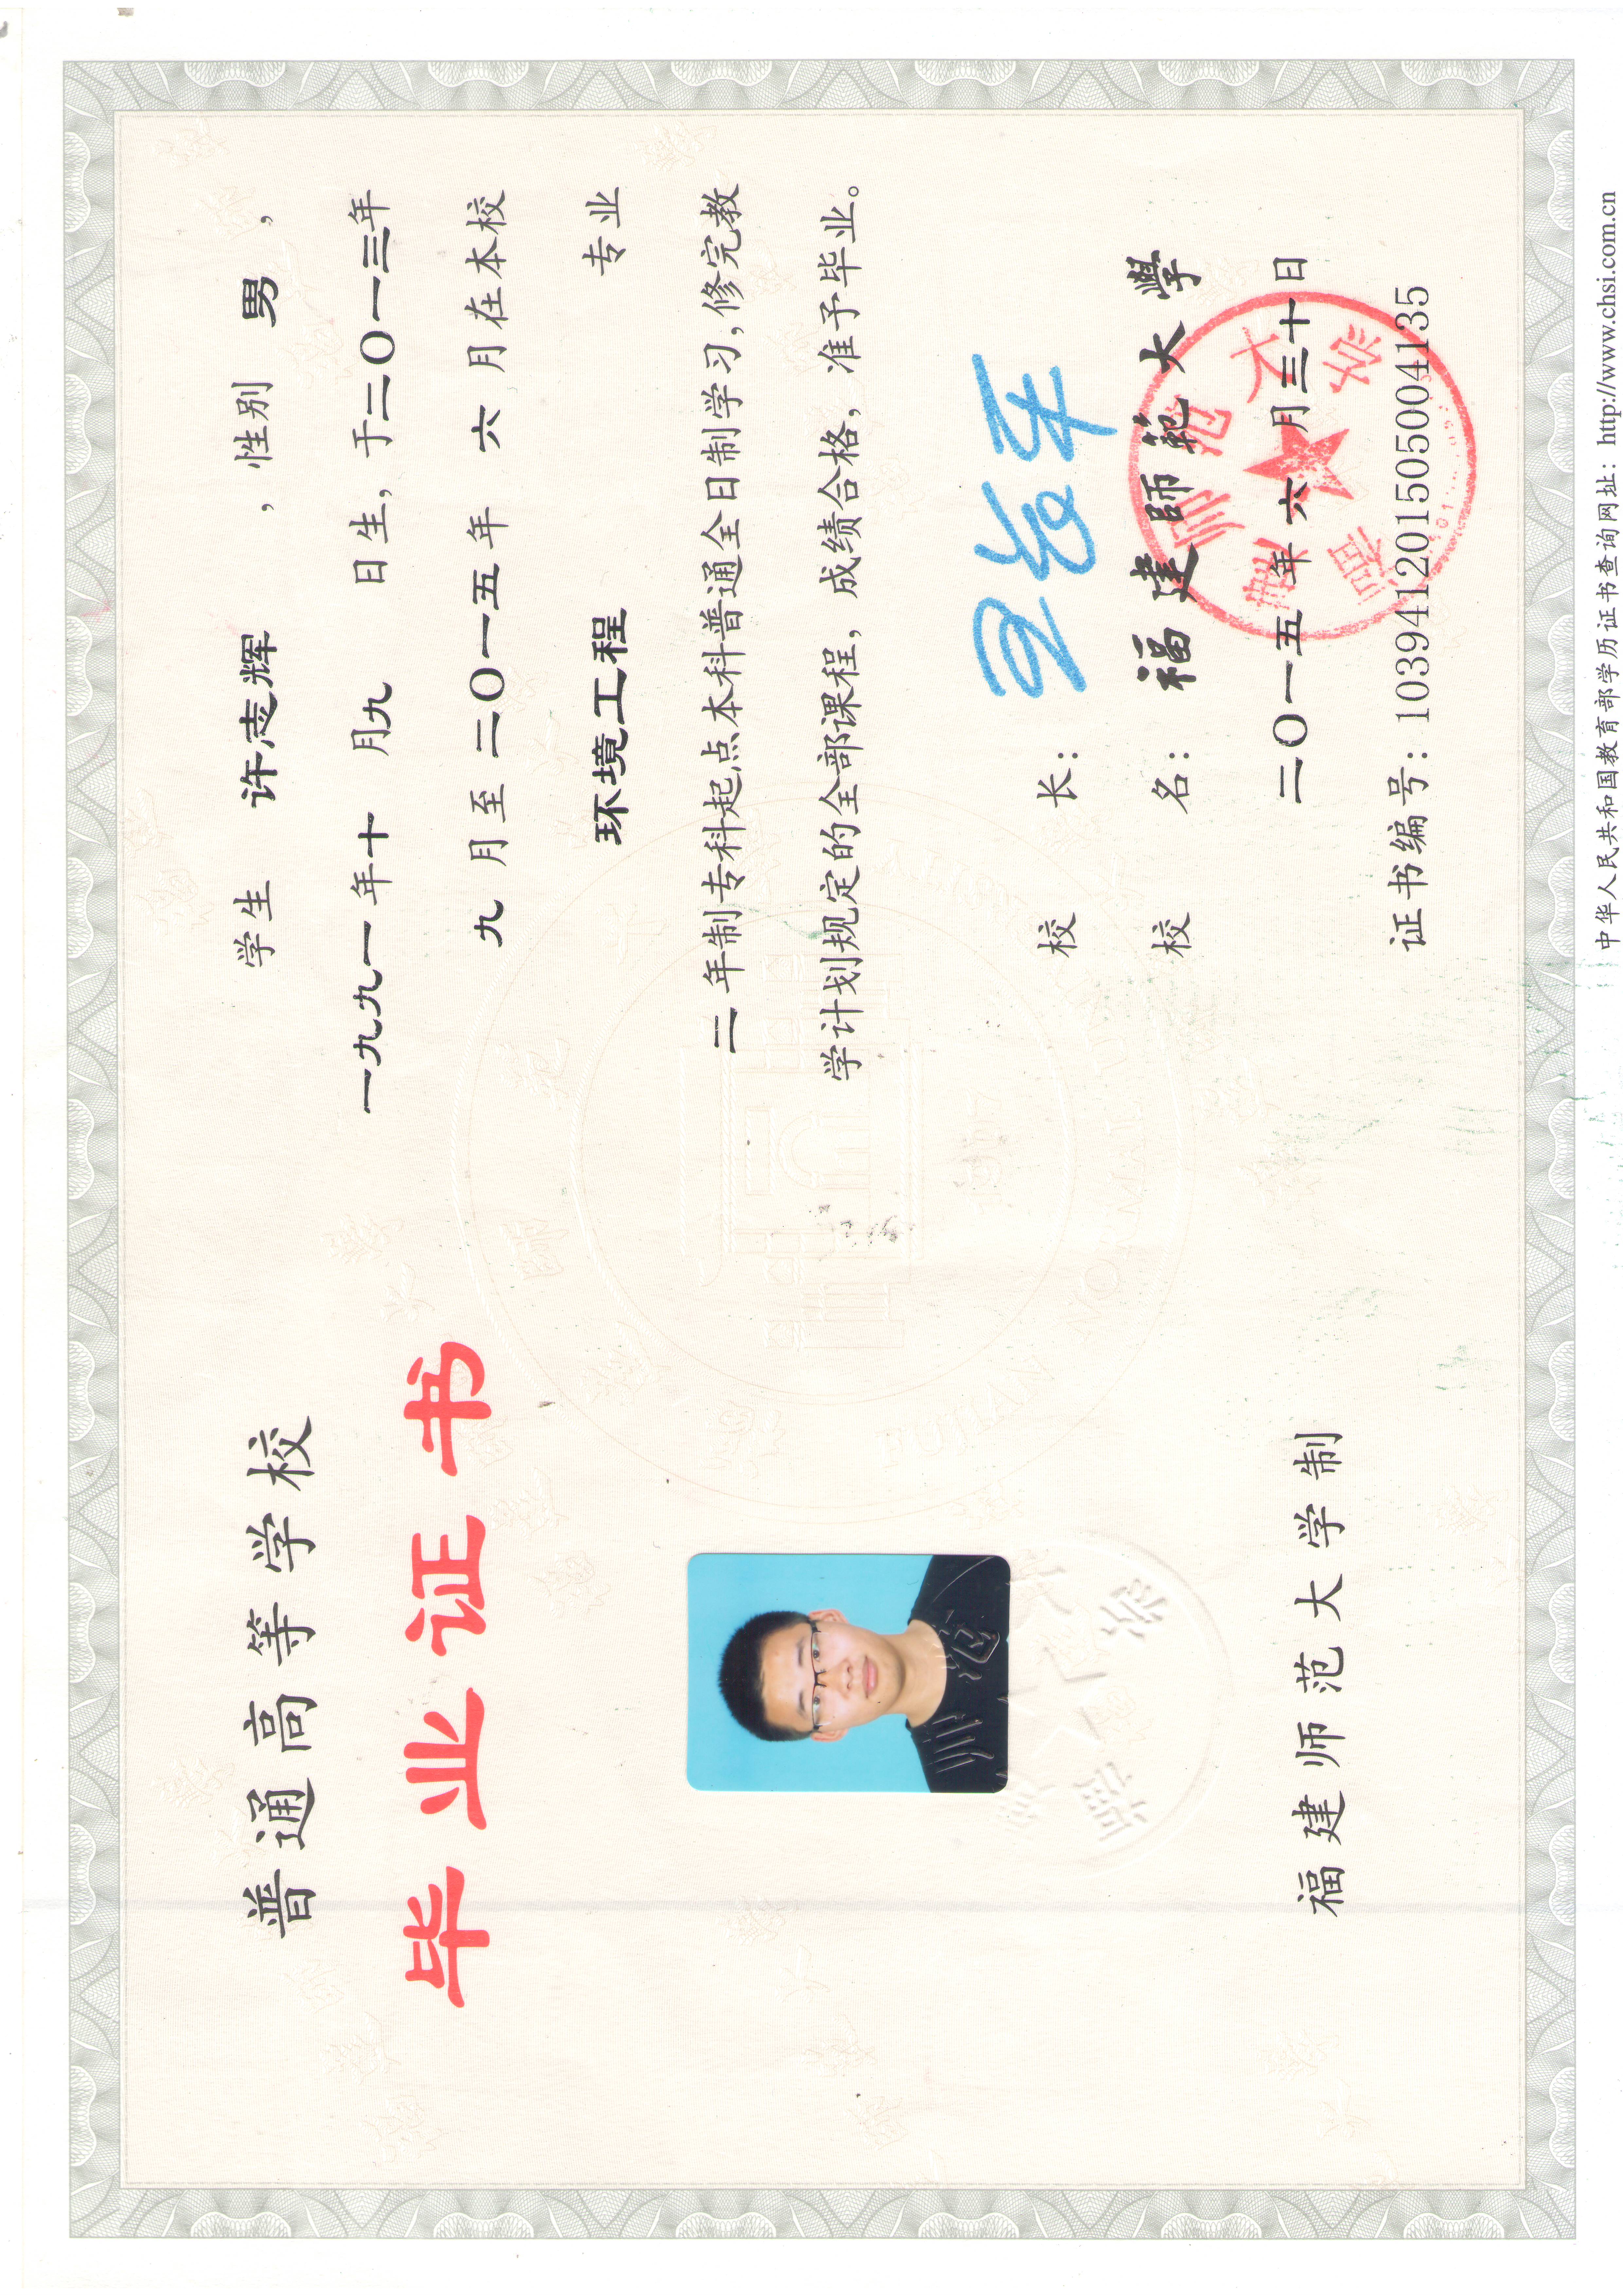 普通高等学校
毕业证书
福建师范大学制
学生 许志辉 ，性别 男 ，
一九九一年十 月九 日生，于二〇一三年
九月至二〇一五年 六 月在本校
环境工程 专业
二年制专科起点本科普通全日制学习，修完教
学计划规定的全部课程，成绩合格，准予毕业。
校 长：
校 名： 福建師範大學
二〇一五年六月三十日
证书编号：103941201505004135
中华人民共和国教育部学历证书查询网址：http://www.chsi.com.cn